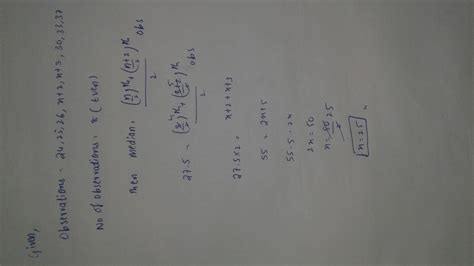 Given,
Observations - 24, 25, 26, x+2, x+3, 30, 33, 37
No of observations - 8 (Even)
Then median = (n/2)th + (n+2/2)th obs / 2
27.5 = (8/2)th + obs / 2
27.5x2 = x+2 + x+3
55 = 2x+5
55-5 = 2x
2x = 50
x = 50 25
x = 25